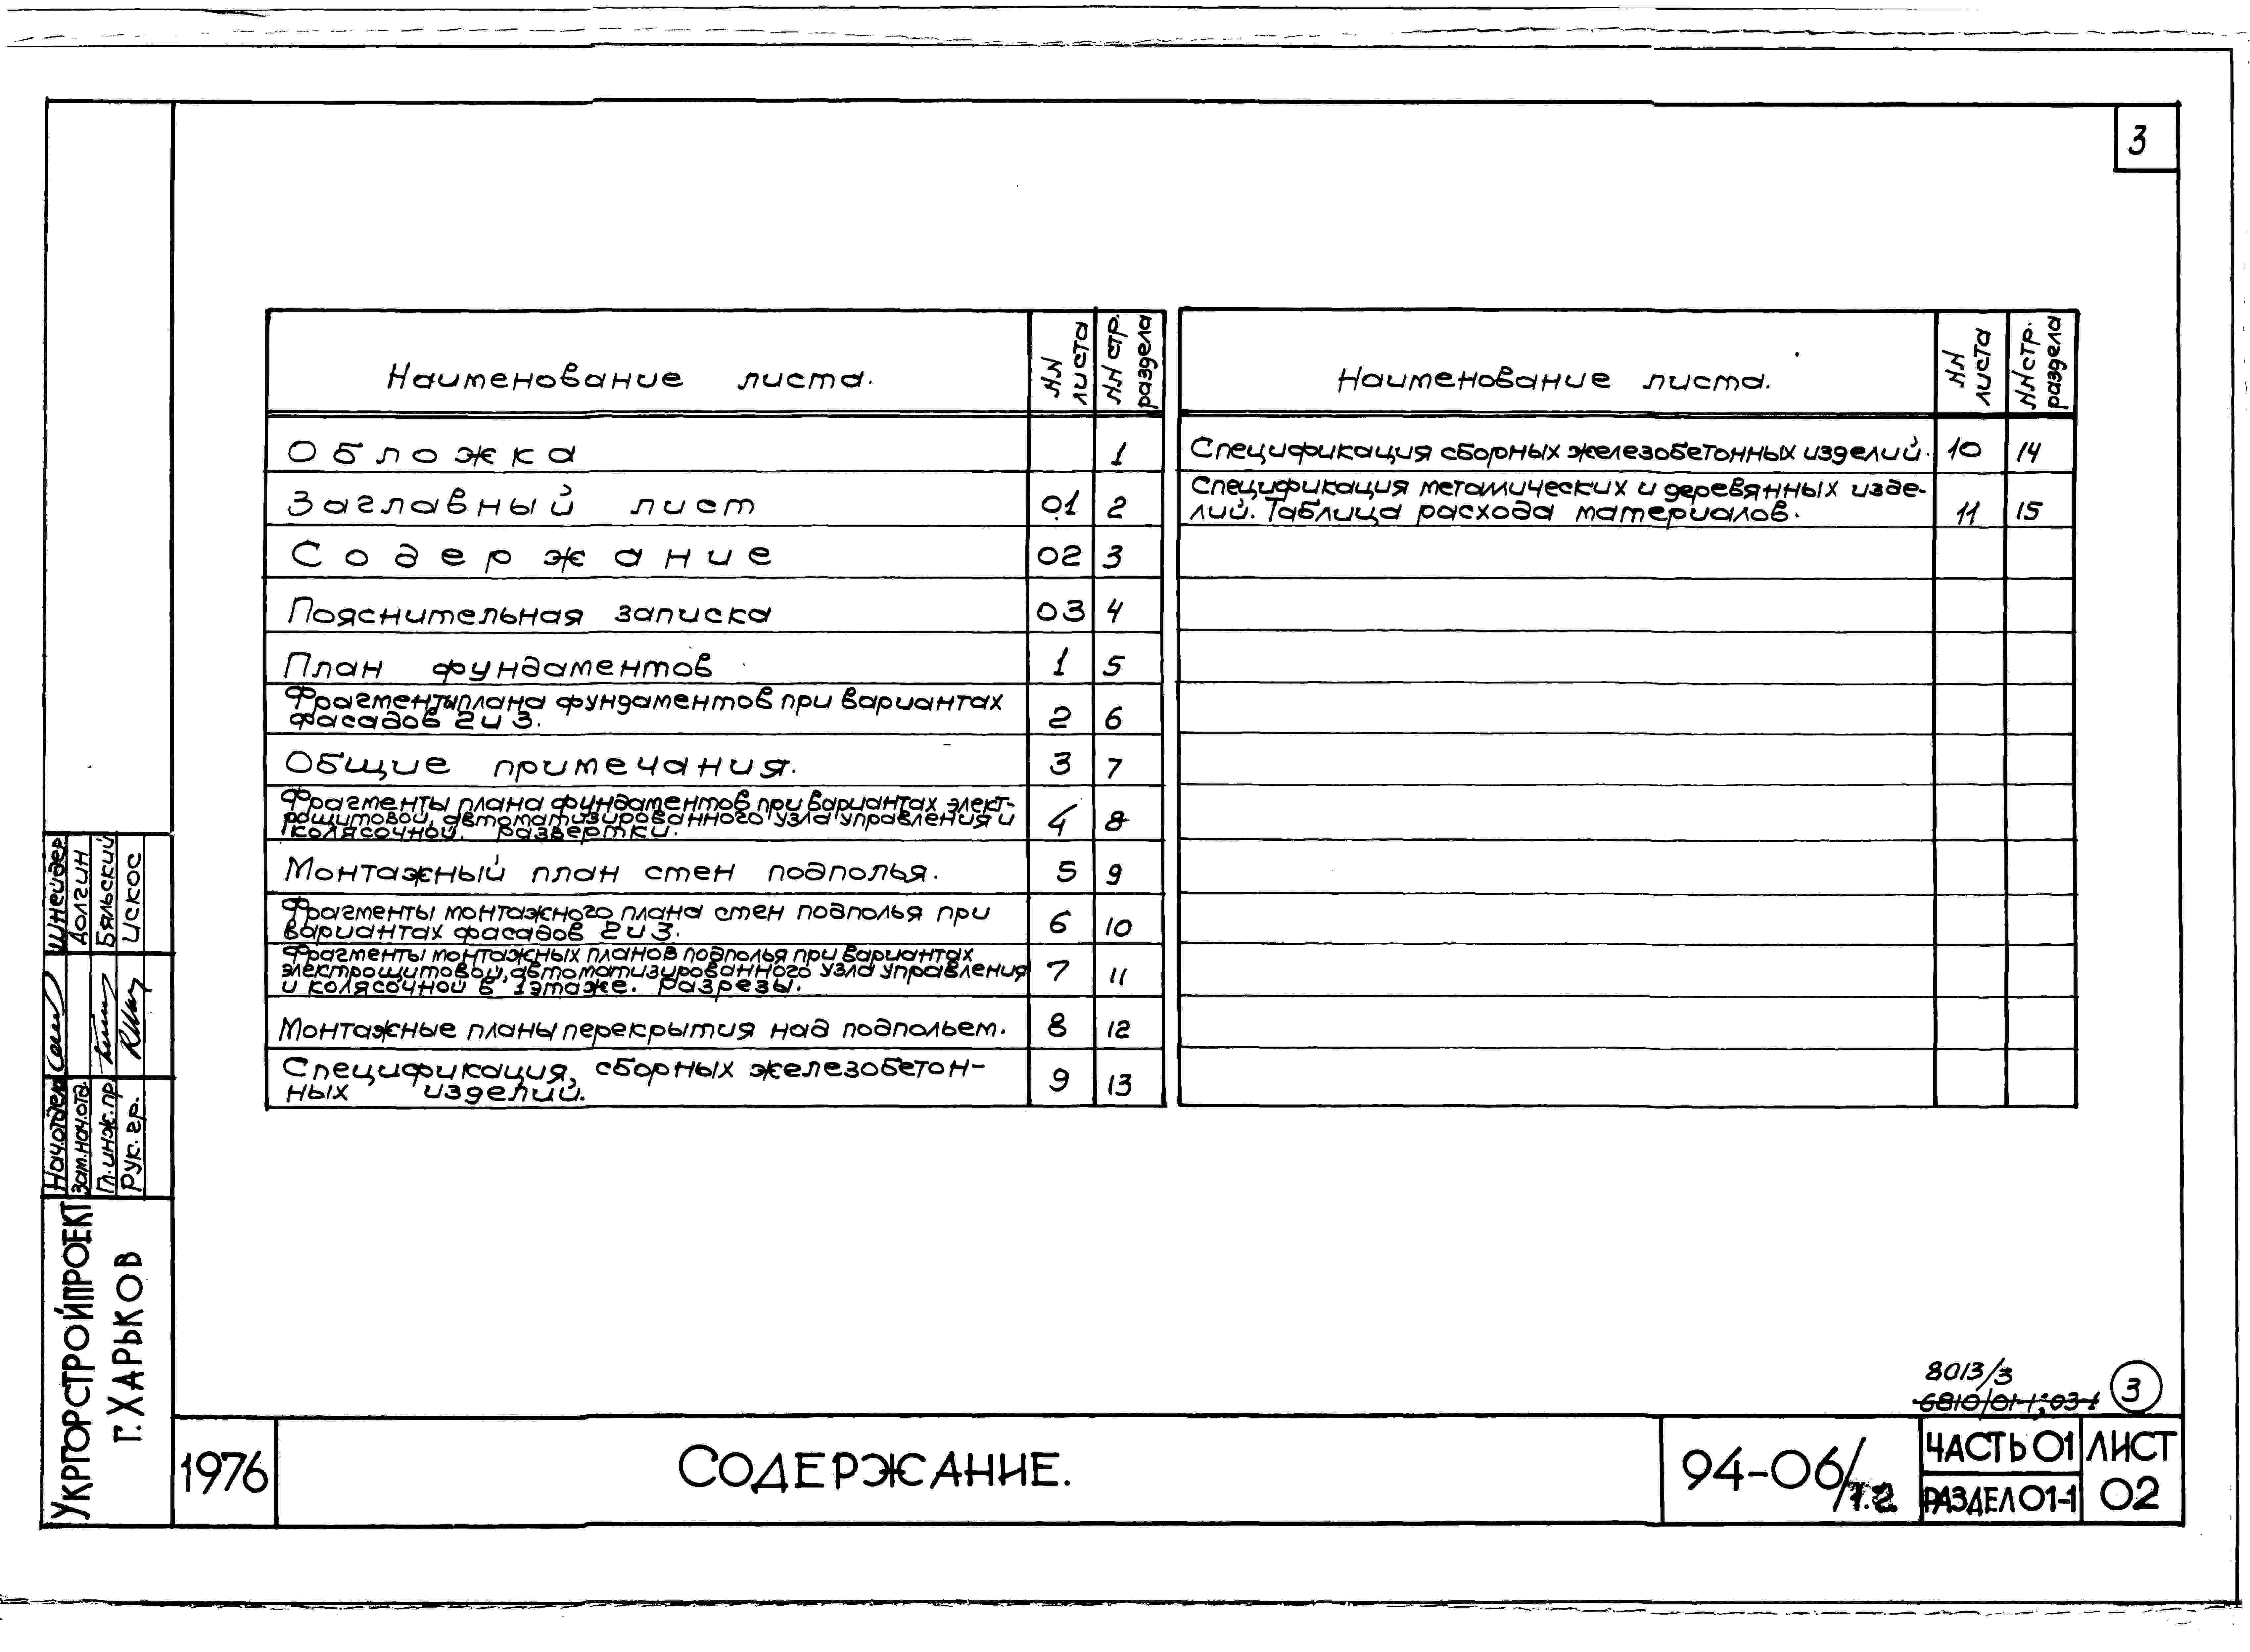 3
Наименование листа.
NN листа
NN стр. раздела
Обложка 1
Заглавный лист 01 2
Содержание 02 3
Пояснительная записка 03 4
План фундаментов 1 5
Фрагменты плана фундаментов при вариантах
фасадов 2 и 3. 2 6
Общие примечания. 3 7
Фрагменты плана фундаментов при вариантах элект-
рощитовой, автоматизированного узла управления и
колясочной. Развертки. 4 8
Монтажный план стен подполья. 5 9
Фрагменты монтажного плана стен подполья при
вариантах фасадов 2 и 3. 6 10
Фрагменты монтажных планов подполья при вариантах
электрощитовой, автоматизированного узла управления
и колясочной в 1 этаже. Разрезы. 7 11
Монтажные планы перекрытия над подпольем. 8 12
Спецификация, сборных железобетон-
ных изделий. 9 13
Наименование листа.
NN листа
NN стр. раздела
Спецификация сборных железобетонных изделий. 10 14
Спецификация металлических и деревянных изде-
лий. Таблица расхода материалов. 11 15
Нач.отдела Шнейдер
Зам.нач.отд. Долгин
Гл.инж.пр. Бяльский
Рук.гр. Искос
УКРГОРСТРОЙПРОЕКТ
Г. ХАРЬКОВ
8013/3
6810/01-1; 03-1
3
1976
СОДЕРЖАНИЕ.
94-06/т.2
ЧАСТЬ 01
РАЗДЕЛ 01-1
ЛИСТ
02